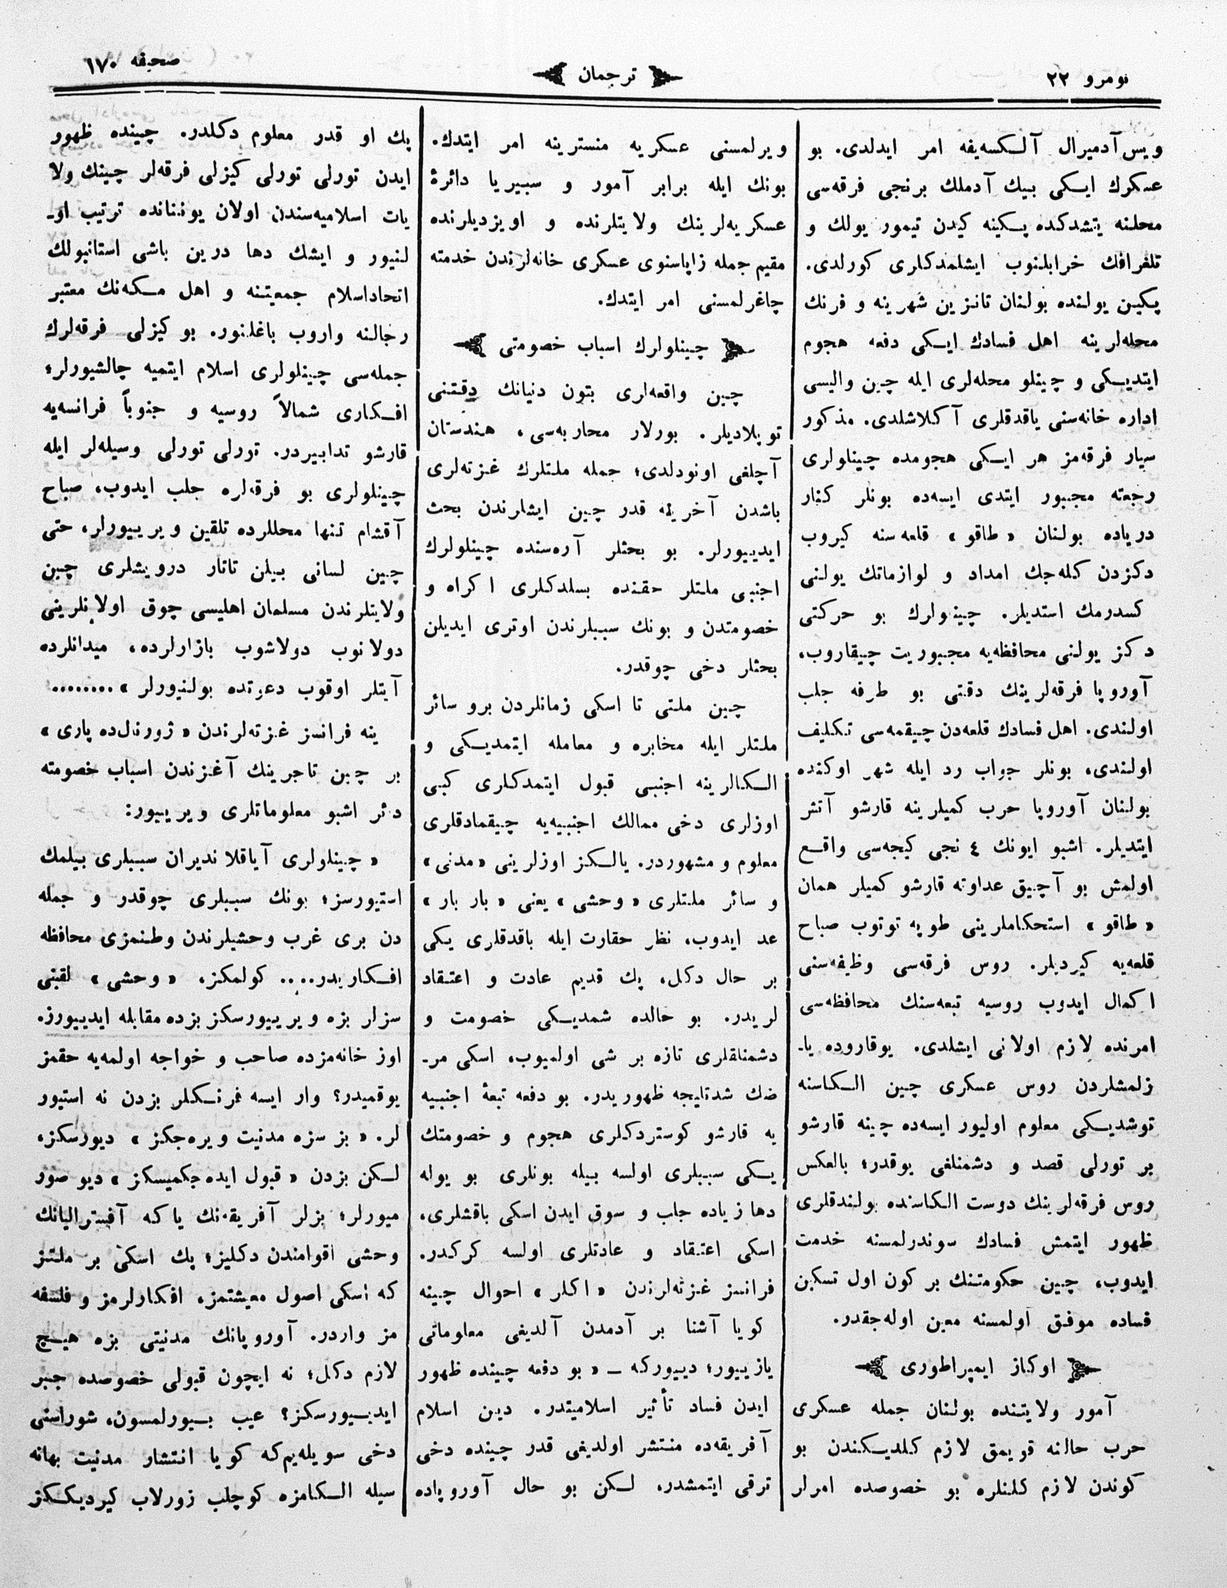 نومرو ٢٢
ترجمان
صحيفه ١٧٠
ويس آدميرال آلكسه‌يفه امر ايدلدى. بو
عسكرك ايكى بيك آدملك برنجى فرقه‌سى
محلنه يتشدكده پكينه كيدن تيمور يولك و
تلغرافك خرابلنوب ايشلمدكلرى كورلدى.
پكين يولنده بولنان تانزين شهرينه و فرنك
محله‌لرينه اهل فسادك ايكى دفعه هجوم
ايتديكى و چينلو محله‌لرى ايله چين واليسى
اداره خانه‌سنى ياقدقلرى آكلاشلدى. مذكور
سيار فرقه‌مز هر ايكى هجومده چينلولرى
رجعته مجبور ايتدى ايسه‌ده بونلر كنار
درياده بولنان « طاقو » قلعه‌سنه كيروب
دكزدن كله‌جك امداد و لوازماتك يولنى
كسدرمك استديلر. چينولرك بو حركتى
دكز يولنى محافظه‌يه مجبوريت چيقاروب،
آوروپا فرقه‌لرينك دقتى بو طرفه جلب
اولندى. اهل فسادك قلعه‌دن چيقمه‌سى تكليف
اولندى، بونلر جواب رد ايله شهر اوكنده
بولنان آوروپا حرب كميلرينه قارشو آتش
ايتديلر. اشبو ايونك ٤ نجى كيجه‌سى واقع
اولمش بو آچيق عداوته قارشو كميلر همان
« طاقو » استحكاملرينى طوپه توتوب صباح
قلعه‌يه كيرديلر. روس فرقه‌سى وظيفه‌سنى
اكمال ايدوب روسيه تبعه‌سنك محافظه‌سى
امرنده لازم اولانى ايشلدى. يوقاروده يا-
زلمشلردن روس عسكرى چين الكاسنه
توشديكى معلوم اوليور ايسه‌ده چينه قارشو
بر تورلى قصد و دشمنلغى يوقدر؛ بالعكس
روس فرقه‌لرينك دوست الكاسنده بولندقلرى
ظهور ايتمش فسادك سوندرلمسنه خدمت
ايدوب، چين حكومتنك بر كون اول تسكين
فساده موفق اولمسنه معين اوله‌جقدر.
اوكاز ايمپراطورى
آمور ولايتنده بولنان جمله عسكرى
حرب حالنه قويمق لازم كلديكندن بو
كوندن لازم كلنلره بو خصوصده امرلر
ويرلمسنى عسكريه منسترينه امر ايتدك.
بونك ايله برابر آمور و سبيريا دائرۀ
عسكريه‌لرينك ولايتلرنده و اويزديلرنده
مقيم جمله زاپاسنوى عسكرى خانه‌لرندن خدمته
چاغرلمسنى امر ايتدك.
چينلولرك اسباب خصومتى
چين واقعه‌لرى بتون دنيانك دقتنى
توپلاديلر. بورلار محاربه‌سى، هندستان
آچلغى اونودلدى؛ جمله ملتلرك غزته‌لرى
باشدن آخرينه قدر چين ايشلرندن بحث
ايدييورلر. بو بحثلر آره‌سنده چينلولرك
اجنبى ملتلر حقنده بسلدكلرى اكراه و
خصومتدن و بونك سببلرندن اوترى ايديلن
بحثلر دخى چوقدر.
چين ملتى تا اسكى زمانلردن برو سائر
ملتلر ايله مخابره و معامله ايتمديكى و
الكالرينه اجنبى قبول ايتمدكلرى كبى
اوزلرى دخى ممالك اجنبيه‌يه چيقمادقلرى
معلوم و مشهوردر. يالكز اوزلرينى « مدنى »
و سائر ملتلرى « وحشى » يعنى « بار بار »
عد ايدوب، نظر حقارت ايله باقدقلرى يكى
بر حال دكل، پك قديم عادت و اعتقاد
لريدر. بو حالده شمديكى خصومت و
دشمنلقلرى تازه بر شى اولميوب، اسكى مر-
ضك شدتليجه ظهوريدر. بو دفعه تبعۀ اجنبيه
يه قارشو كوستردكلرى هجوم و خصومتك
يكى سببلرى اولسه بيله بونلرى بو يوله
دها زياده جلب و سوق ايدن اسكى باقشلرى،
اسكى اعتقاد و عادتلرى اولسه كركدر.
فرانسز غزته‌لرندن « اكلر » احوال چينه
كويا آشنا بر آدمدن آلديغى معلوماتى
يازييور؛ دييوركه ـ « بو دفعه چينده ظهور
ايدن فساد تأثير اسلاميتدر. دين اسلام
آفريقه‌ده منتشر اولديغى قدر چينده دخى
ترقى ايتمشدر. لكن بو حال آوروپاده
پك او قدر معلوم دكلدر. چينده ظهور
ايدن تورلى تورلى كيزلى فرقه‌لر چينك ولا
يات اسلاميه‌سندن اولان يوننانده ترتيب او-
لنيور و ايشك دها درين باشى استانبولك
اتحاد اسلام جمعيتنه و اهل مكه‌نك معتبر
رجالنه واروب باغلنور. بو كيزلى فرقه‌لرك
جمله‌سى چينلولرى اسلام ايتميه چالشيورلر؛
افكارى شمالاً روسيه و جنوباً فرانسه‌يه
قارشو تدابيردر. تورلى تورلى وسيله‌لر ايله
چينلولرى بو فرقه‌لره جلب ايدوب، صباح
آقشام تنها محللرده تلقين ويرييورلر، حتى
چين لسانى بيلن تاتار درويشلرى چين
ولايتلرندن مسلمان اهليسى چوق اولانلرينى
دولانوب دولاشوب بازارلرده، ميدانلرده
آيتلر اوقوب دعوتده بولنيورلر » ........
ينه فرانسز غزته‌لرندن « ژورنال ده پارى »
بر چين تاجرينك آغزندن اسباب خصومته
دئر اشبو معلوماتلرى ويرييور:
« چينلولرى آياقلانديران سببلرى بيلمك
استيورسز؛ بونك سببلرى چوقدر و جمله
دن برى غرب وحشيلرندن وطنمزى محافظه
افكاريدر.... كولمكز، « وحشى » لقبنى
سزلر بزه ويرييورسكز بزده مقابله ايدييورز.
اوز خانه‌مزده صاحب و خواجه اولمه‌يه حقمز
يوقميدر؟ وار ايسه فرنكلر بزدن نه استيور
لر. « بز سزه مدنيت ويره‌جكز » ديورسكز،
لكن بزدن « قبول ايده‌جكميسكز » ديو صور
ميورلر؛ بزلر آفريقه‌نك ياكه آفيستراليانك
وحشى اقوامندن دكليز؛ پك اسكى بر ملتز
كه اسكى اصول معيشتمز، افكارلرمز و فلسفه
مز واردر. آوروپانك مدنيتى بزه هيچ
لازم دكل؛ نه ايچون قبولى خصوصده جبر
ايدييورسكز؟ عيب بيورلمسون، شوراسنى
دخى سويله‌يم‌كه كويا انتشار مدنيت بهانه
سيله الكامزه كوچلب زورلاب كيرديككز